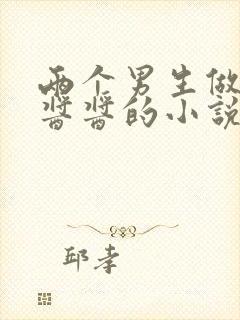 两个男生做
酱酱的小說
邱李